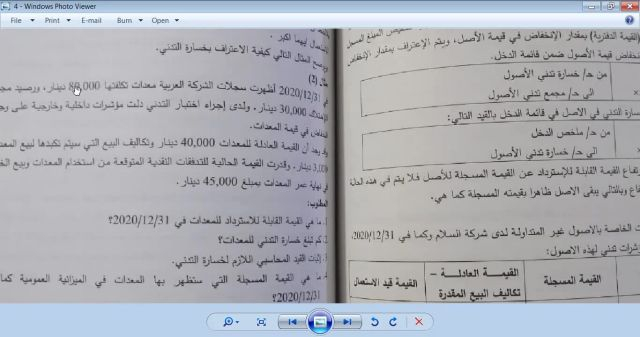 4 - Windows Photo Viewer
File Print E-mail Burn Open
(القيمة الدفترية) بمقدار الإنخفاض في قيمة الأصل، ويتم الإعتراف بمقدار الإنخفاض
قيمة الأصول ضمن قائمة الدخل.
من حـ/ خسارة تدني الأصول
× الى حـ/ مجمع تدني الأصول
خسارة التدني في الاصل في قائمة الدخل بالقيد التالي:
من حـ/ ملخص الدخل
الى حـ/ خسارة تدني الأصول
القيمة القابلة للإسترداد عن القيمة المسجلة للأصل فلا يتم في هذه الحالة
وبالتالي يبقى الاصل ظاهرا بقيمته المسجلة كما هي.
الخاصة بالاصول غير المتداولة لدى شركة السلام وكما في 2020/12/31
تدني لهذه الاصول:
القيمة المسجلة
القيمة العادلة – تكاليف البيع المقدرة
القيمة قيد الاستعمال
ايهما اكبر.
المثال التالي كيفية الاعتراف بخسارة التدني.
مثال (2)
في 2020/12/31 أظهرت سجلات الشركة العربية معدات تكلفتها دينار، ورصيد
30,000 دينار. ولدى إجراء اختبار التدني دلت مؤشرات داخلية وخارجية على
في قيمة المعدات.
أن القيمة العادلة للمعدات 40,000 دينار وتكاليف البيع التي سيتم تكبدها لبيع
3,000 دينار. وقدرت القيمة الحالية للتدفقات النقدية المتوقعة من استخدام المعدات وبيع
في نهاية عمر المعدات بمبلغ 45,000 دينار.
المطلوب:
1. ما هي القيمة القابلة للاسترداد للمعدات في 2020/12/31؟
2. كم تبلغ خسارة التدني للمعدات؟
3. إثبات القيد المحاسبي اللازم لخسارة التدني.
ما هي القيمة المسجلة التي ستظهر بها المعدات في الميزانية العمومية كما
2020/12/31؟